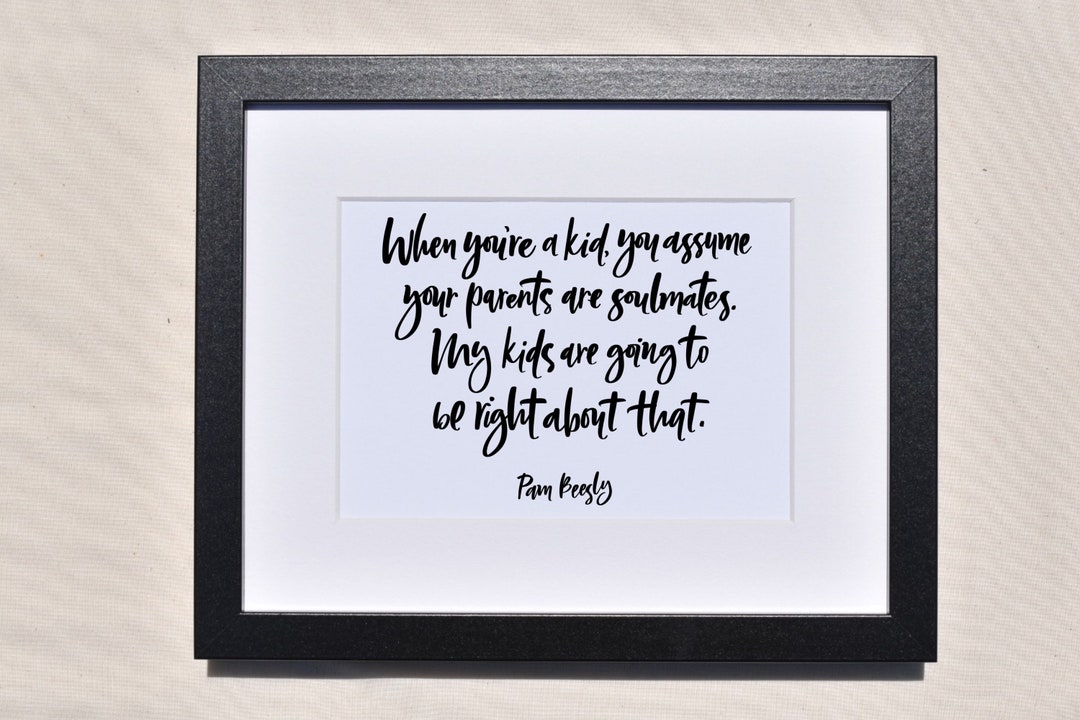 When you're a kid, you assume
your parents are soulmates.
My kids are going to
be right about that.
Pam Beesly